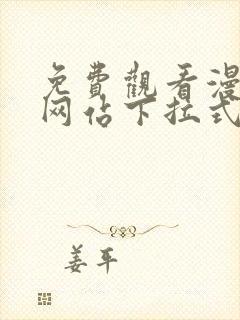 免費觀看漫
网佔下拉式
姜平